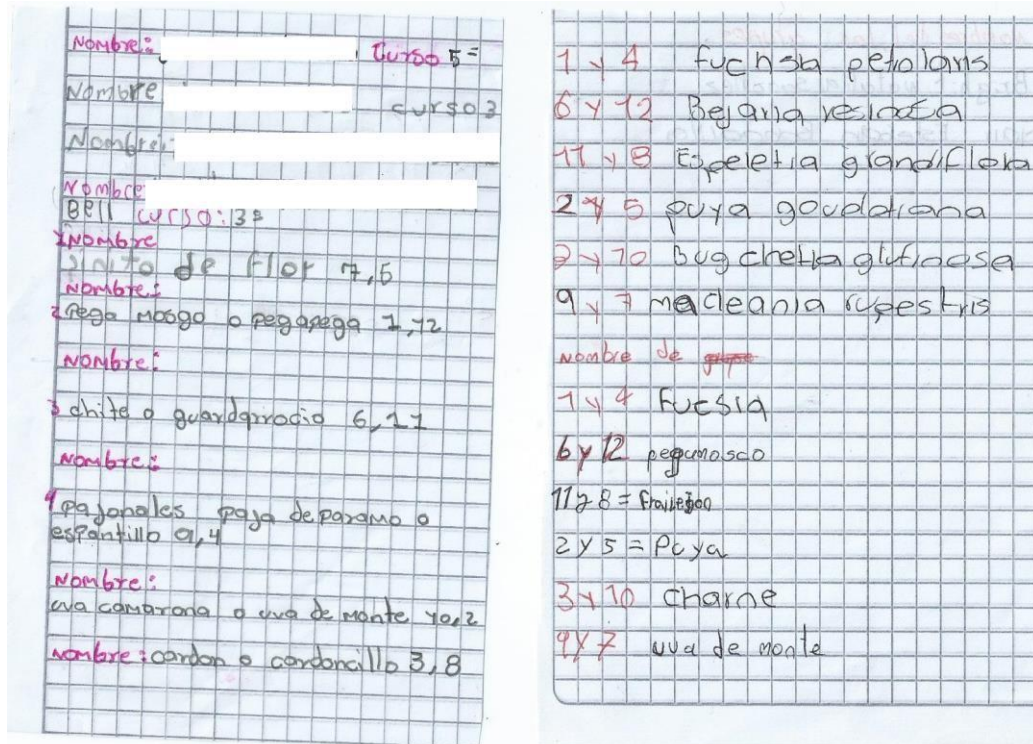 Nombre: Curso 5=
Nombre curso 3
Nombre:
Nombre
Bell curso: 3=
Nombre
de flor 7,5
Nombre:
2 pega mosgo o pegapega 1,12
Nombre:
3 chite o guardarrocio 6,11
Nombre:
4 pajonales paja de paramo o
espantillo 9,4
Nombre:
uva camarona o uva de monte 10,2
Nombre: cardon o cardoncillo 3,8
1 y 4 fuchsia petiolaris
6 y 12 Bejaria
11 y 8 Espeletia grandiflora
2 y 5 puya
y 10
9 y 7 macleania rupestris
Nombre de
1 y 4 Fucsia
6 y 12 pegamosco
11 y 8 = frailejon
2 y 5 = Puya
3 y 10 charne
9 y 7 uva de monte